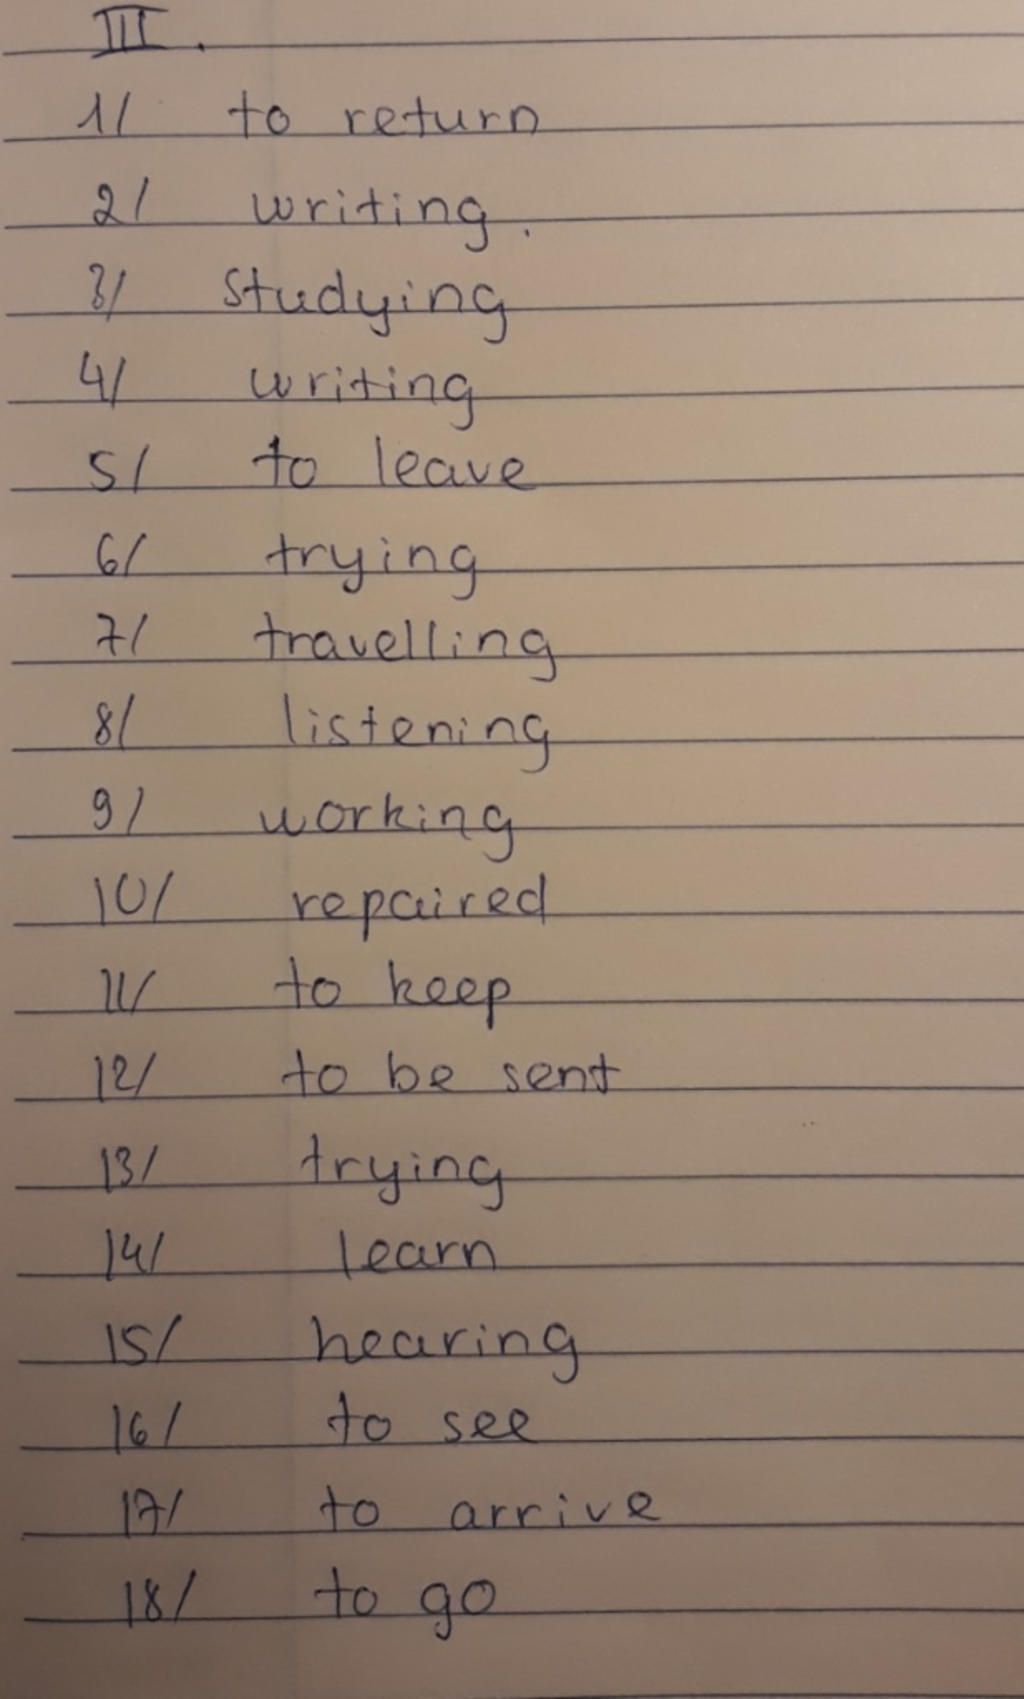 III.
1/ to return
2/ writing.
3/ studying
4/ writing
5/ to leave
6/ trying
7/ travelling
8/ listening
9/ working
10/ repaired
11/ to keep
12/ to be sent
13/ trying
14/ learn
15/ hearing
16/ to see
17/ to arrive
18/ to go